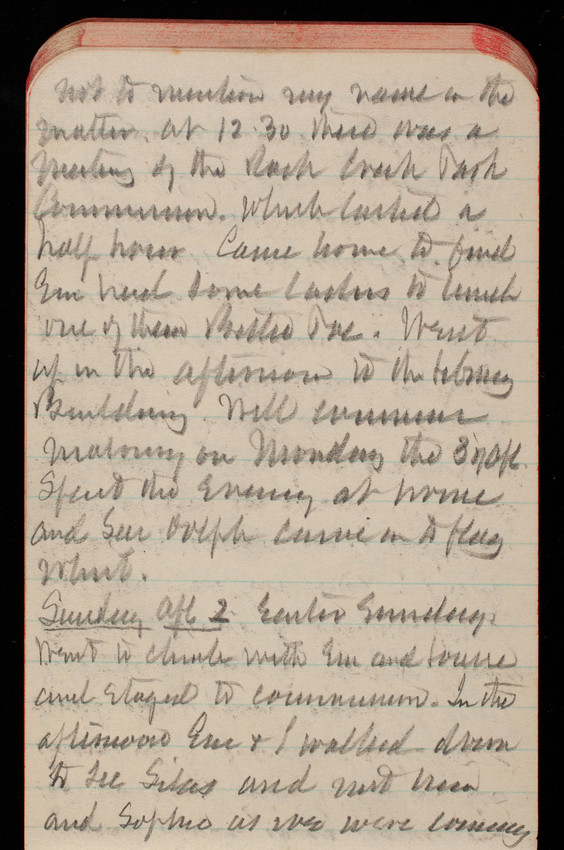 not to mention my name in the
matter. At 12 30 there was a
Meeting of the Rock Creek Park
Commission. Which lasted a
half hour Came home to find
Em had some ladies to lunch
one of them Poe. Went
up in the afternoon to the Library
Building. Will commence
on Monday the 3d Apl
Spent the Evening at home
and Genl Dolph came in to play
Whist.
Sunday Apl 2 Easter Sunday.
Went to church with Em and
and stayed to communion. In the
afternoon Em & I walked down
to see Silas and met him
and Sophie as we were coming